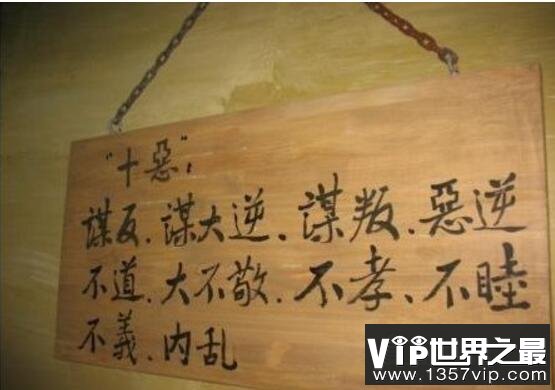 "十惡"：
謀反、謀大逆、謀叛、惡逆
不道、大不敬、不孝、不睦
不義、内乱
VIP世界之最
www.1357vip.com